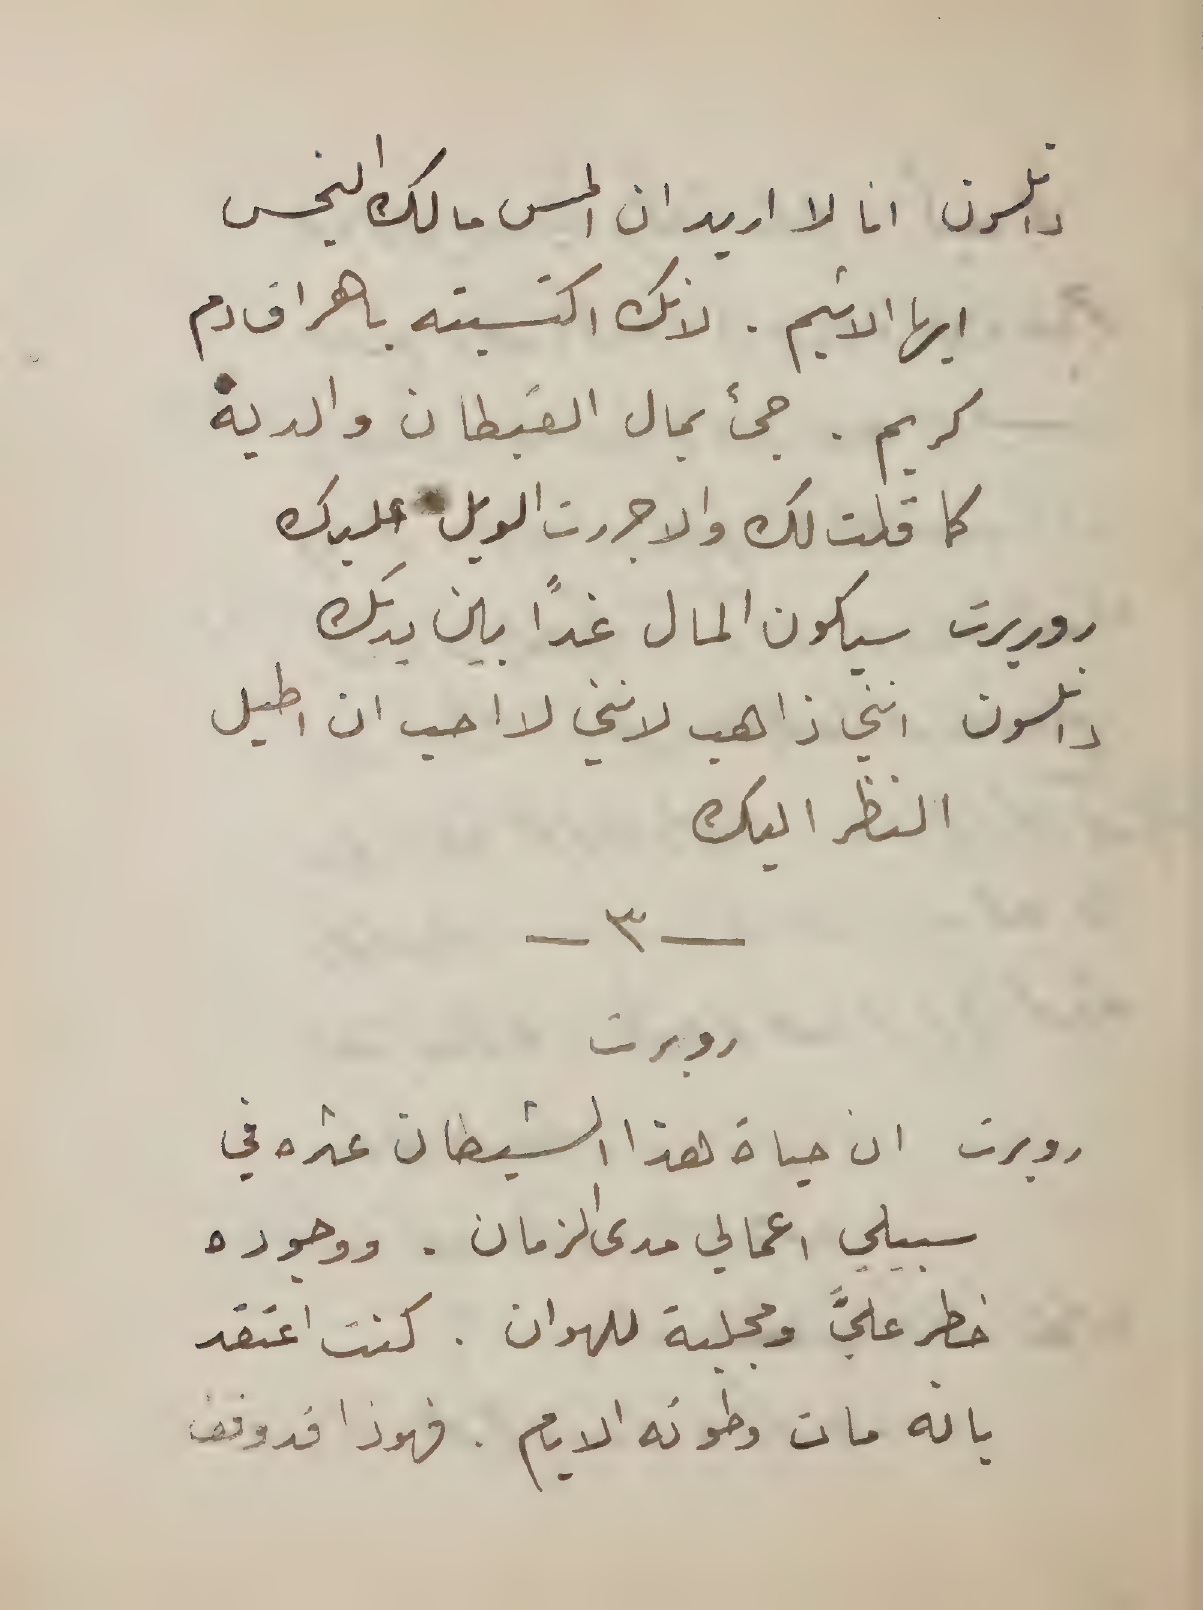 دانلسون انا لا اريد ان المس مالك النجس
ايها الاثيم . لانك اكتسبته باهراق دم
كريم . جئ بمال القبطان والدية
كما قلت لك والا جررت الويل عليك
روبرت سيكون المال غداً بين يديك
دانلسون انني ذاهب لانني لا احب ان اطيل
النظر اليك
— ٣ —
روبرت
روبرت ان حياة هذا الشيطان عثره في
سبيلي اعمالي مدى الزمان . ووجوده
خطر عليَّ ومجلبة للهوان . كنت اعتقد
بانه مات وطوته الايام . فهوذا قد وقف